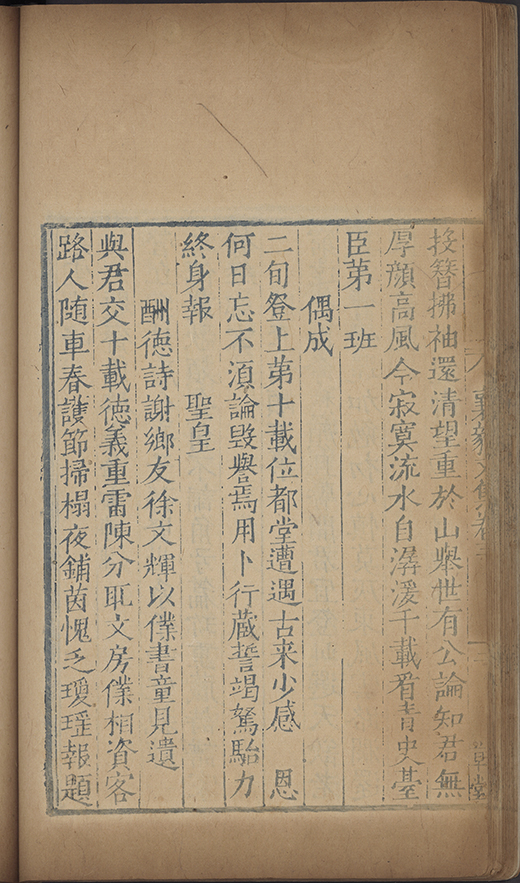 投簪拂袖還清望重於山舉世有公論知君無
厚顔高風今寂寞流水自潺湲千載看青史臺
臣第一班
偶成
二旬登上第十載位都堂遭遇古来少感 恩
何日忘不湏論毀譽焉用卜行藏誓竭駑駘力
終身報 聖皇
酬德詩謝鄉友徐文輝以僕書童見遺
與君交十載德義重雷陳分取文房僕相資客
路人隨車春護節掃榻夜鋪茵愧乏瓊瑶報題